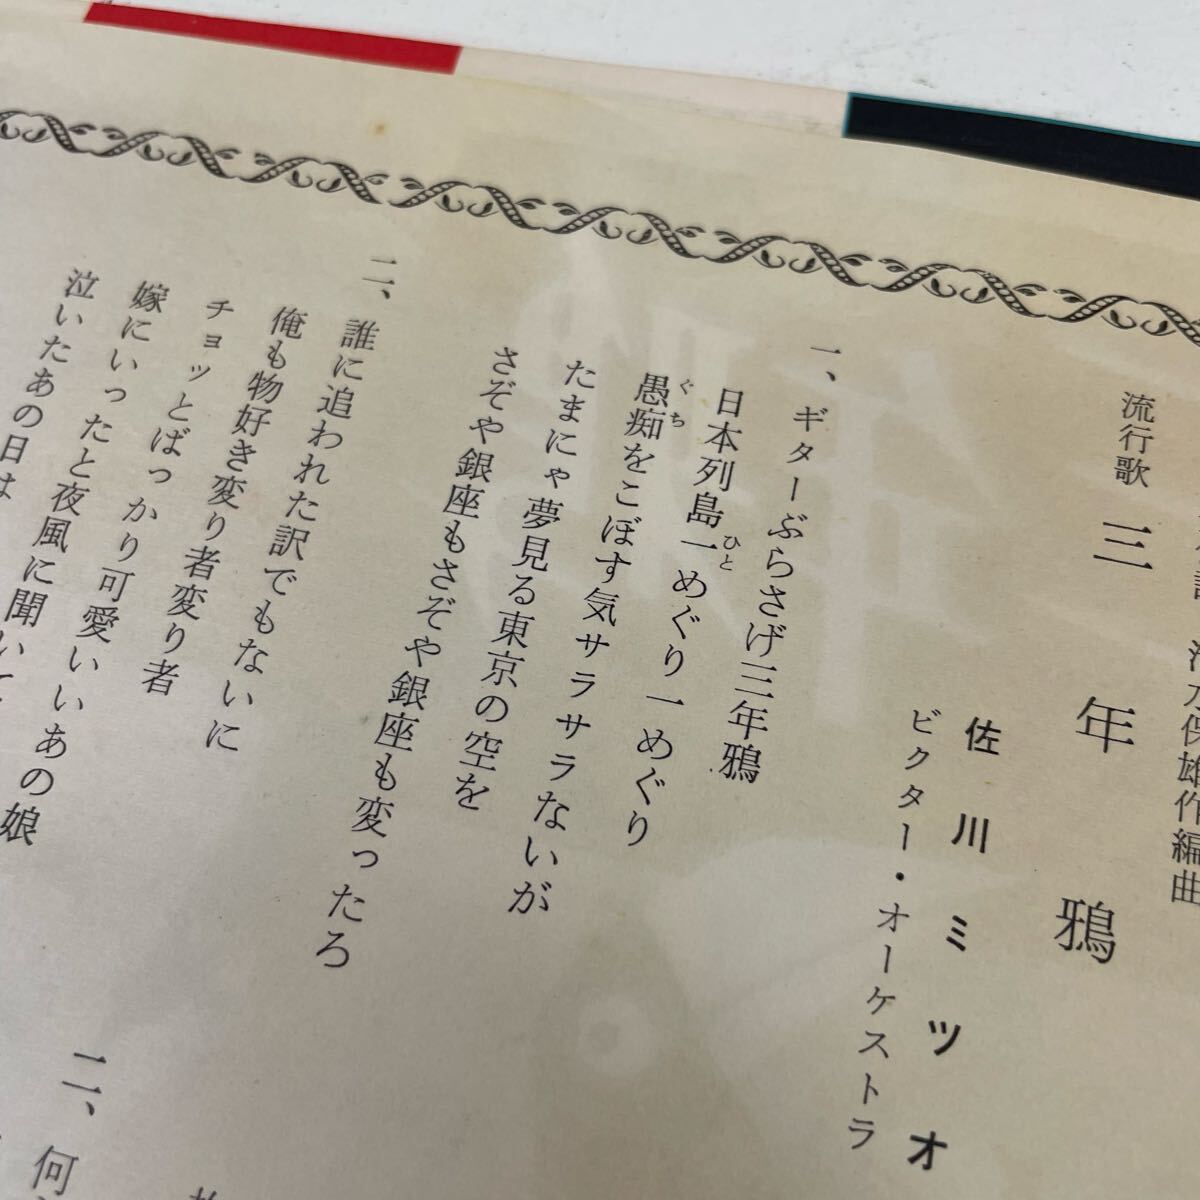 保雄作編曲
流行歌 三年鴉
佐川ミツオ
ビクター・オーケストラ
一、ギターぶらさげ三年鴉
日本列島一めぐり一めぐり
ひと
愚痴をこぼす気サラサラないが
ぐち
たまにゃ夢見る東京の空を
さぞや銀座もさぞや銀座も変ったろ
二、誰に追われた訳でもないに
俺も物好き変り者変り者
チョッとばっかり可愛いいあの娘
嫁にいったと夜風に聞いて
泣いたあの日は
二、何